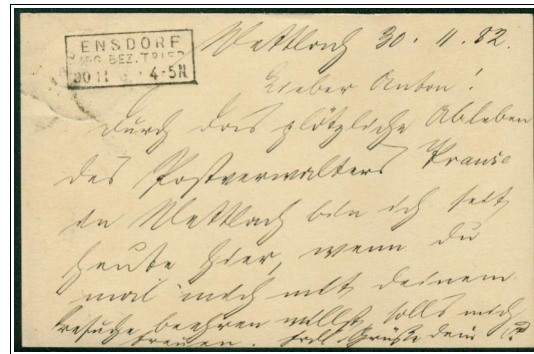 ENSDORF
REG. BEZ. TRIER
30 11 4-5N
Mettlach 30. 11. 82.
Lieber Anton!
Durch das plötzliche Ableben
des Postverwalters
in Mettlach bin ich seit
heute hier, wenn du
mal mich mit deinem
Besuche beehren willst, solls mich
freuen. Grüße dein